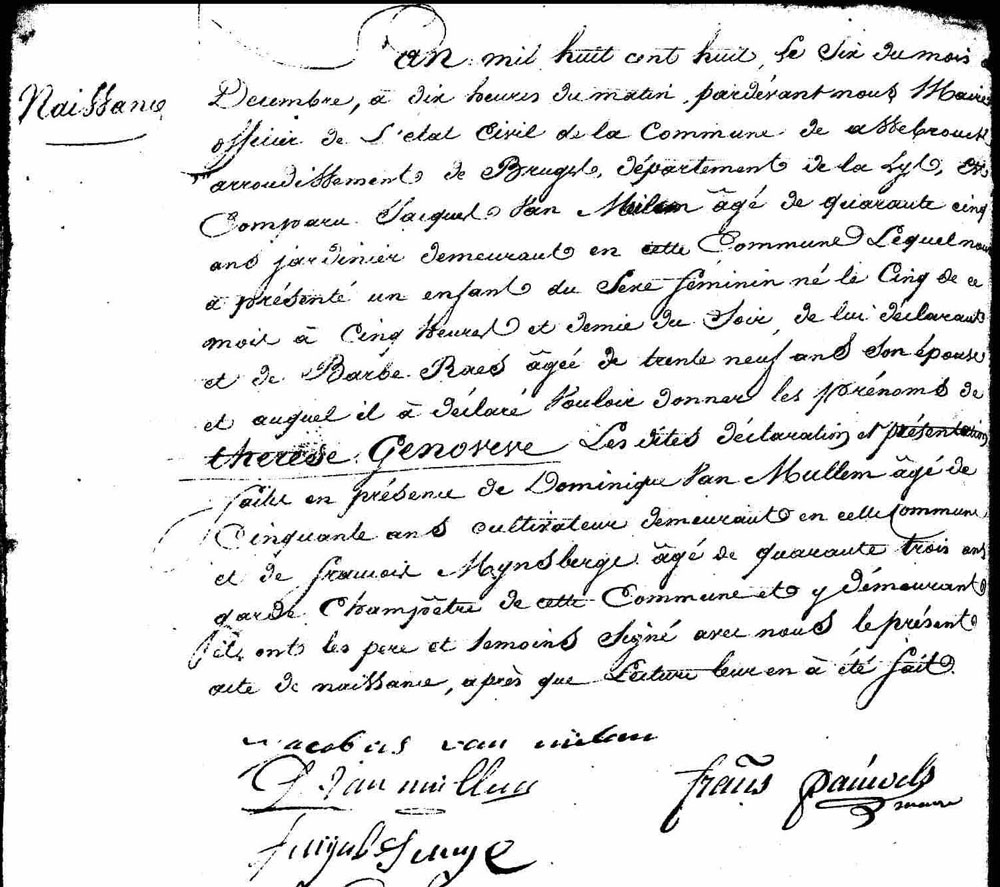 L'an mil huit cent huit, le Six du mois d
Naissance
Decembre, à dix heures du matin, pardévant nous Maire
officier de L'état Civil de la Commune de assebrouck
arroudissement de Bruges, département de la Lys, est
Comparu Jacques Van Milem âgé de quarante cinq
ans jardinier demeurant en cette Commune Lequel nous
à présenté un enfant du Sexe féminin né le Cinq de ce
mois à Cinq heures et demie du Soir, de lui déclarant
et de Barbe Raes âgée de trente neuf ans Son épouse
et auquel il à déclaré Vouloir donner les prénoms de
therese Genoveve Les dites déclaration et présentation
faite en présence de Dominique Van Mullem âgé de
Cinquante ans cultivateur demeurant en cette Commune
et de francois Mynsberge âgé de quarante trois ans
garde Champêtre de cette Commune et y démeurant
et ont les pere et temoins Signé avec nous le présent
acte de naissance, après que Lecture leur en à été fait.
jacobus van milem
D Van mullem
frans pauwels
maire